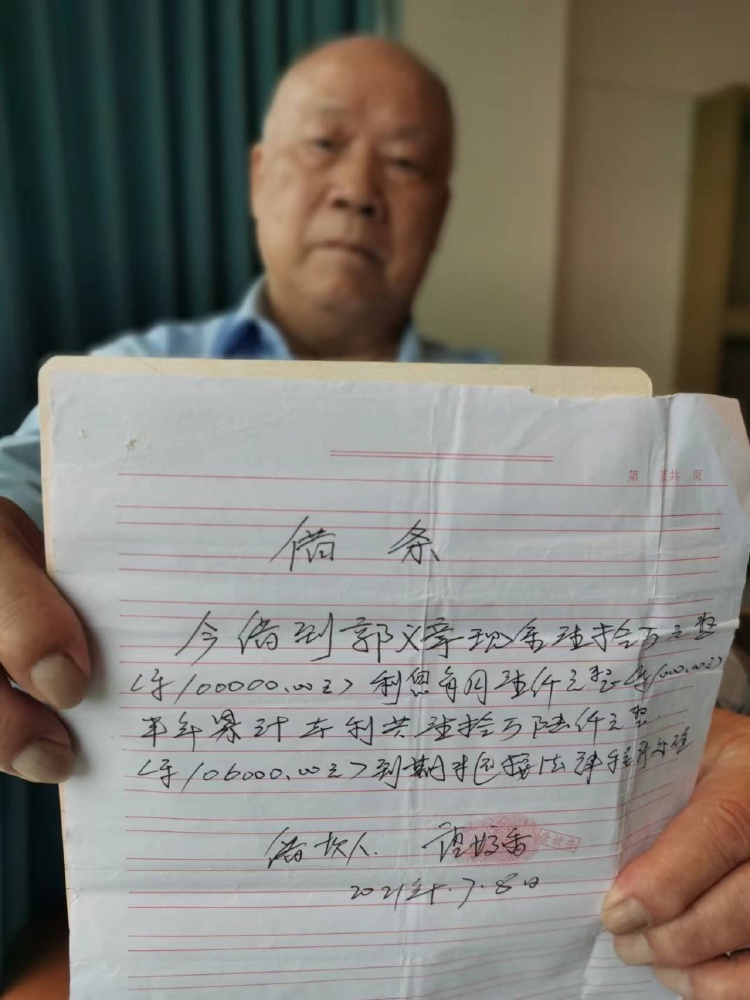 第 页共 页
借 条
今借到郭义章现金壹拾万元整
(¥100000.00元)利息每月壹仟元整(¥1000.00元)
半年累计本利共壹拾万陆仟元整
(¥106000.00元)到期未还按法律程序办理
借款人
2021年.7.8日